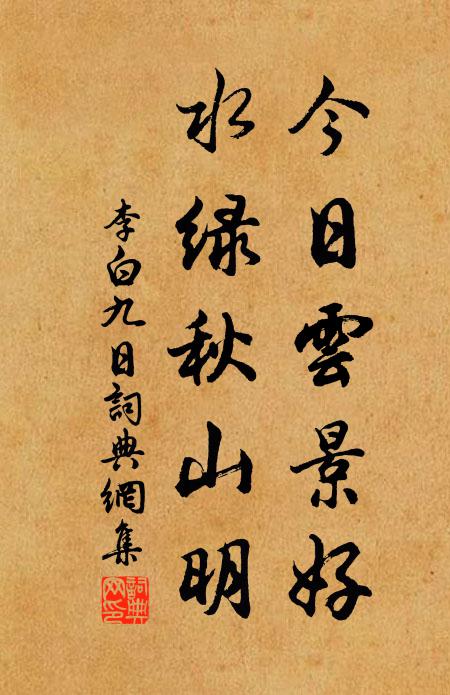 今日雲景好
水绿秋山明
李白九日詞典網集
詞典
网印